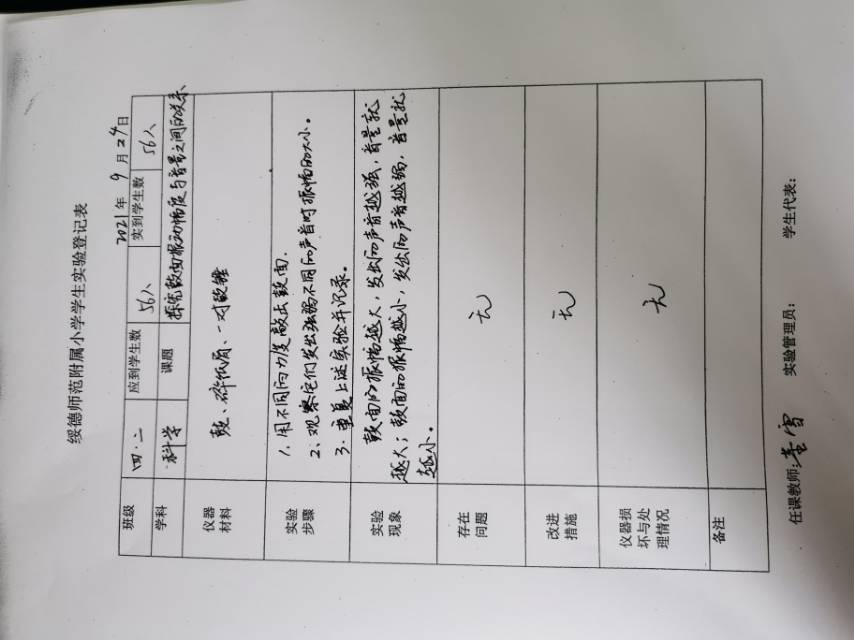 绥德师范附属小学学生实验登记表
2021年 9月24日
班级 四.二 应到学生数 56人 实到学生数 56人
学科 科学 课题 探究鼓面振动幅度与音量之间的关系
仪器材料 鼓、碎纸屑、一对鼓锤
实验步骤 1.用不同的力度敲击鼓面.
2、观察它们发出强弱不同的声音时振幅的大小。
3.重复上述实验并记录。
实验现象 鼓面的振幅越大,发出的声音越强,音量就
越大;鼓面的振幅越小,发出的声音越弱,音量就
越小。
存在问题 无
改进措施 无
仪器损坏与处理情况 无
备注
任课教师:董雪 实验管理员: 学生代表: